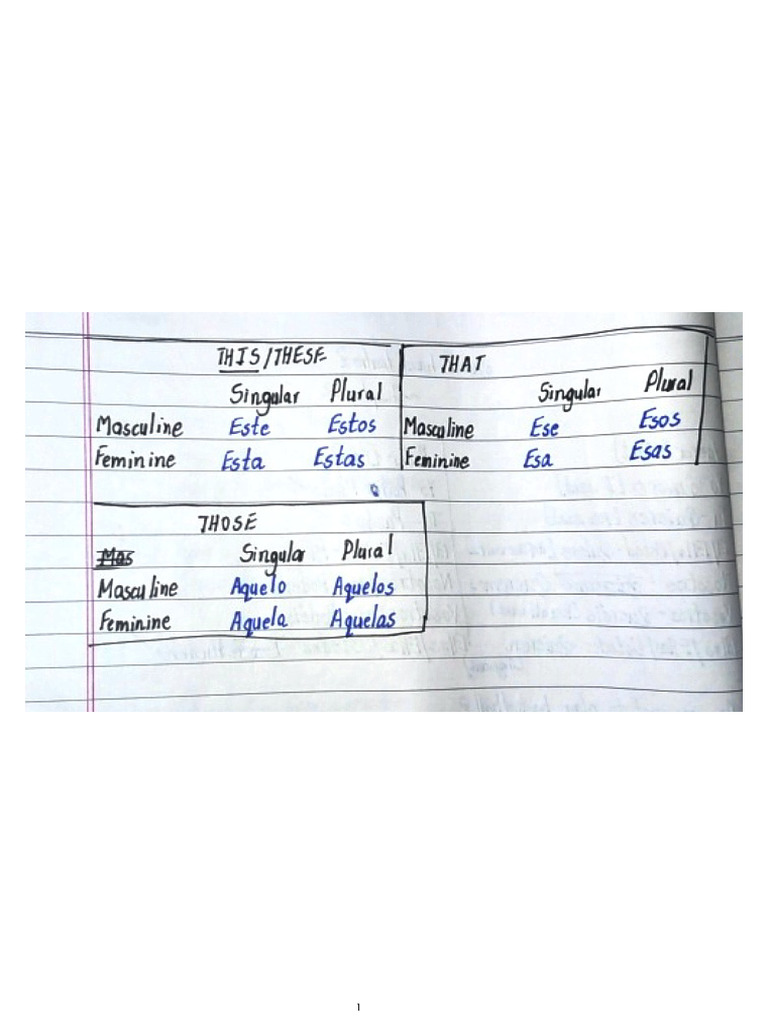 THIS/THESE
Singular Plural
Masculine Este Estos
Feminine Esta Estas
THAT
Singular Plural
Masculine Ese Esos
Feminine Esa Esas
THOSE
Mas
Singular Plural
Masculine Aquelo Aquelos
Feminine Aquela Aquelas
1